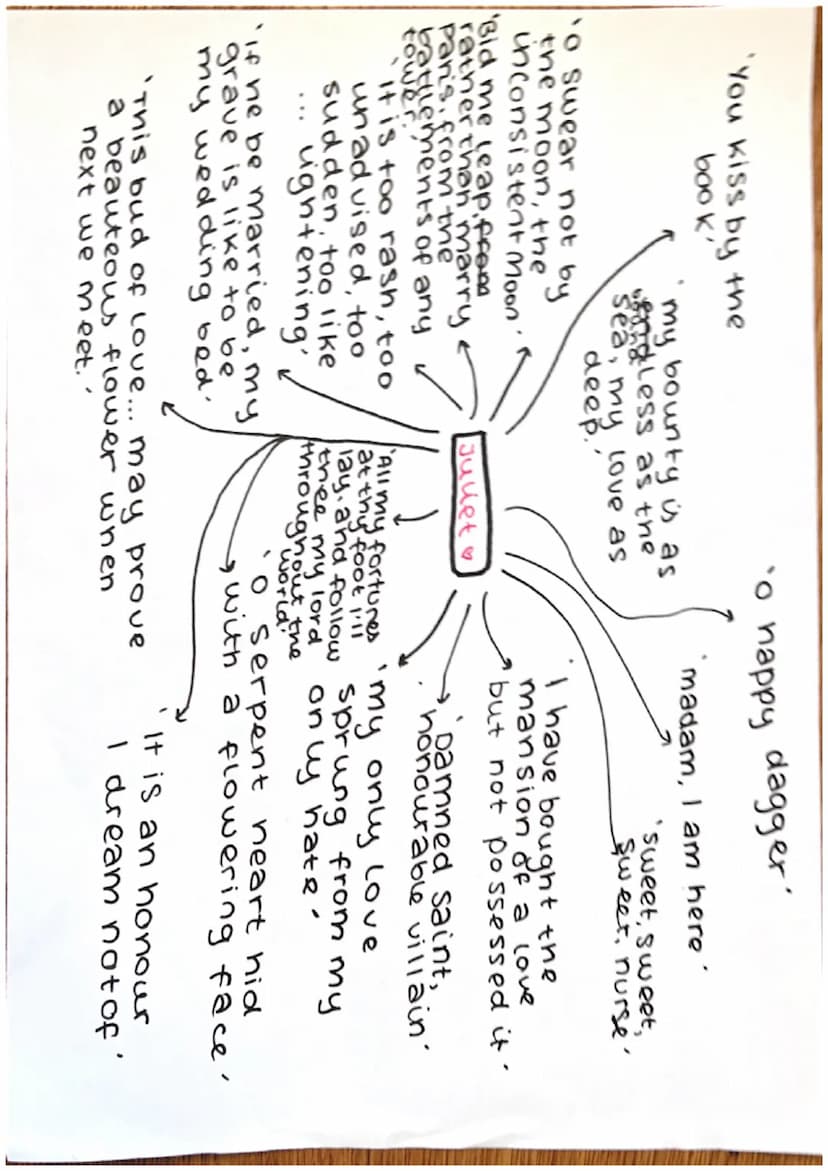 'You kiss by the
book'
'O happy dagger'
'my bounty is as
endless as the
sea, my love as
deep.'
'madam, I am here'
'sweet, sweet,
sweet, nurse'
'O swear not by
the moon, the
inconsistent moon'
'Bid me leap, from
rather than marry
paris, from the
battlements of any
tower.'
Juliet
'I have bought the
mansion of a love
but not possessed it'
'It is too rash, too
unadvised, too
sudden, too like
... lightening'
'Damned saint,
honourable villain'
'All my fortunes
at thy foot I'll
lay, and follow
thee my lord
throughout the
world'
'my only love
sprung from my
only hate'
'If he be married, my
grave is like to be
my wedding bed'
'O serpent heart hid
with a flowering face'
'This bud of love... may prove
a beauteous flower when
next we meet.'
'It is an honour
I dream not of'